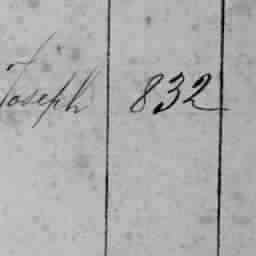 Joseph 832